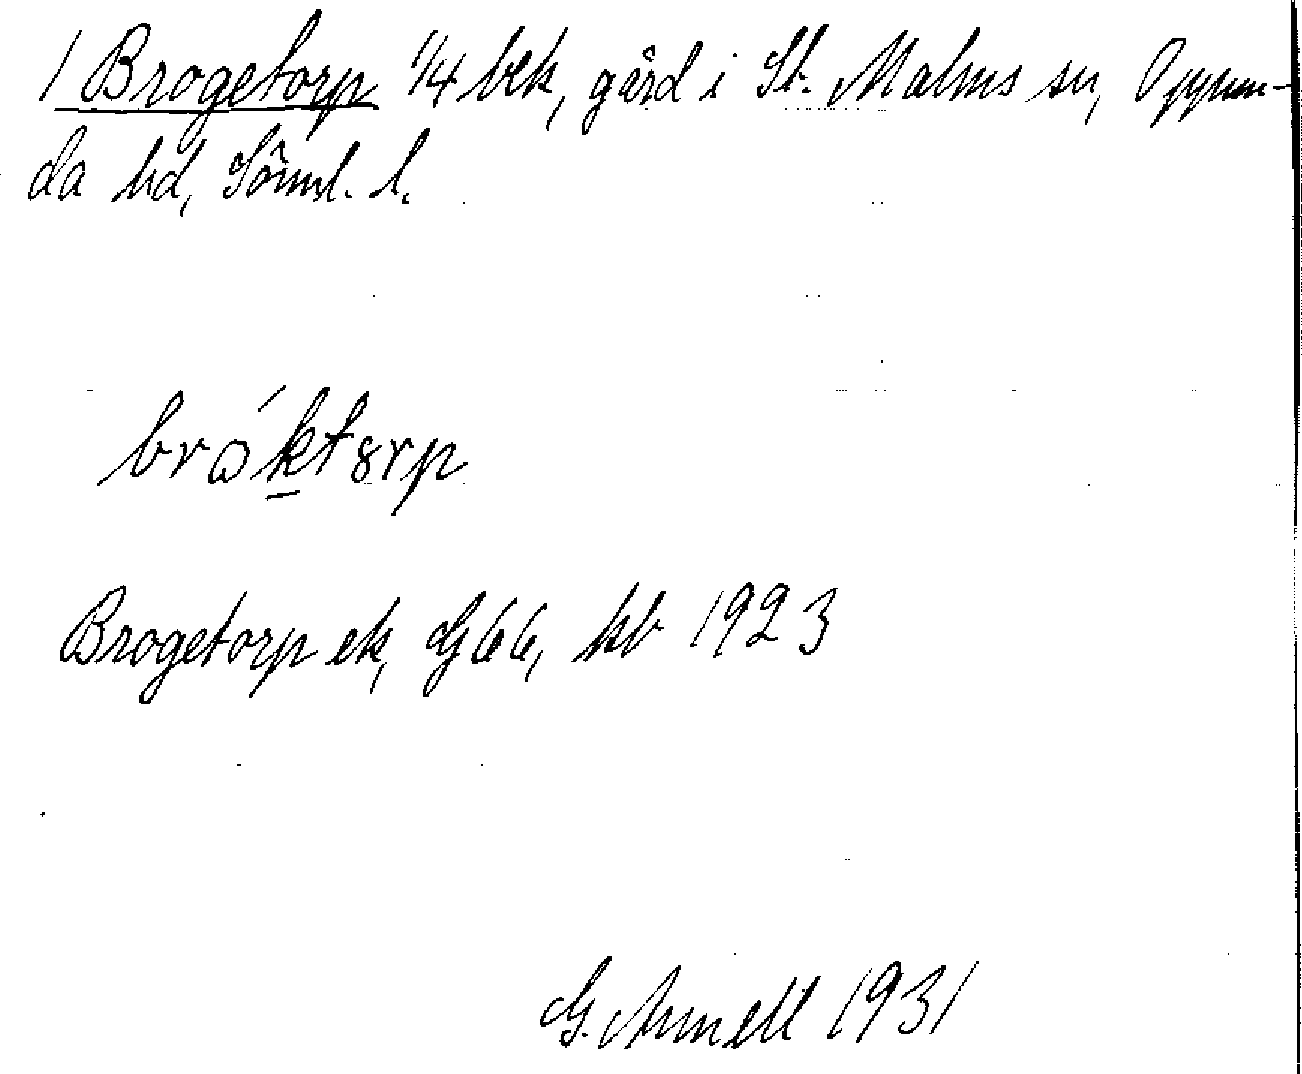 1 Brogetorp 1/4 bek, gård i St. Malms sn, Oppun-
da hd, Söml. l.
brɷ́ktȣrp
Brogetorp ek, G66, kb 1923
G. Armell 1931